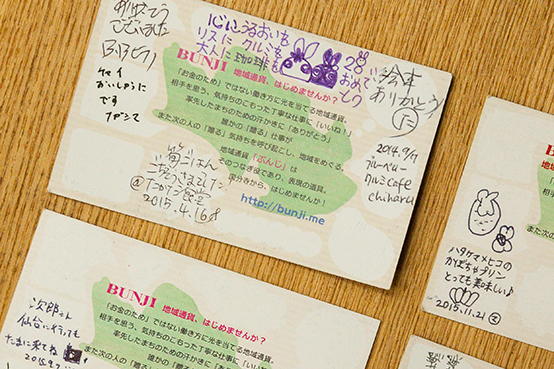 ありがとう
ございました
心にうるおいを
リスにクルミを
大人に珈琲を
おめで
とう
絵本
ありがとう
BUNJI 地域通貨、はじめませんか？
「お金のため」ではない働き方に光を当てる地域通貨。
相手を思う、気持ちのこもった丁寧な仕事に「いいね！」
率先したまちのための汗かきに「ありがとう」
誰かの「贈る」仕事が
また次の人の「贈る」気持ちを呼び起こし、地域をめぐる。
地域通貨「ぶんじ」は
そのつなぎ役であり、表現の道具。
国分寺から、はじめませんか！
http://bunji.me
ごはん
2015.4.16
2014.9/7
ブルーベリー
クルミcafe
chiharu
ハタケマメヒコの
かぼちゃプリン
とっても美味しい♪
2015.11.21
次郎さん
仙台に行っても
たまに来てね
2015.9.7
BUNJI 地域通貨、はじめませんか？
「お金のため」ではない働き方に光を当てる地域通貨。
相手を思う、気持ちのこもった丁寧な仕事に「いい
率先したまちのための汗かきに「あ
誰かの「贈る」仕
また次の人の「贈る」気持ちを呼び起